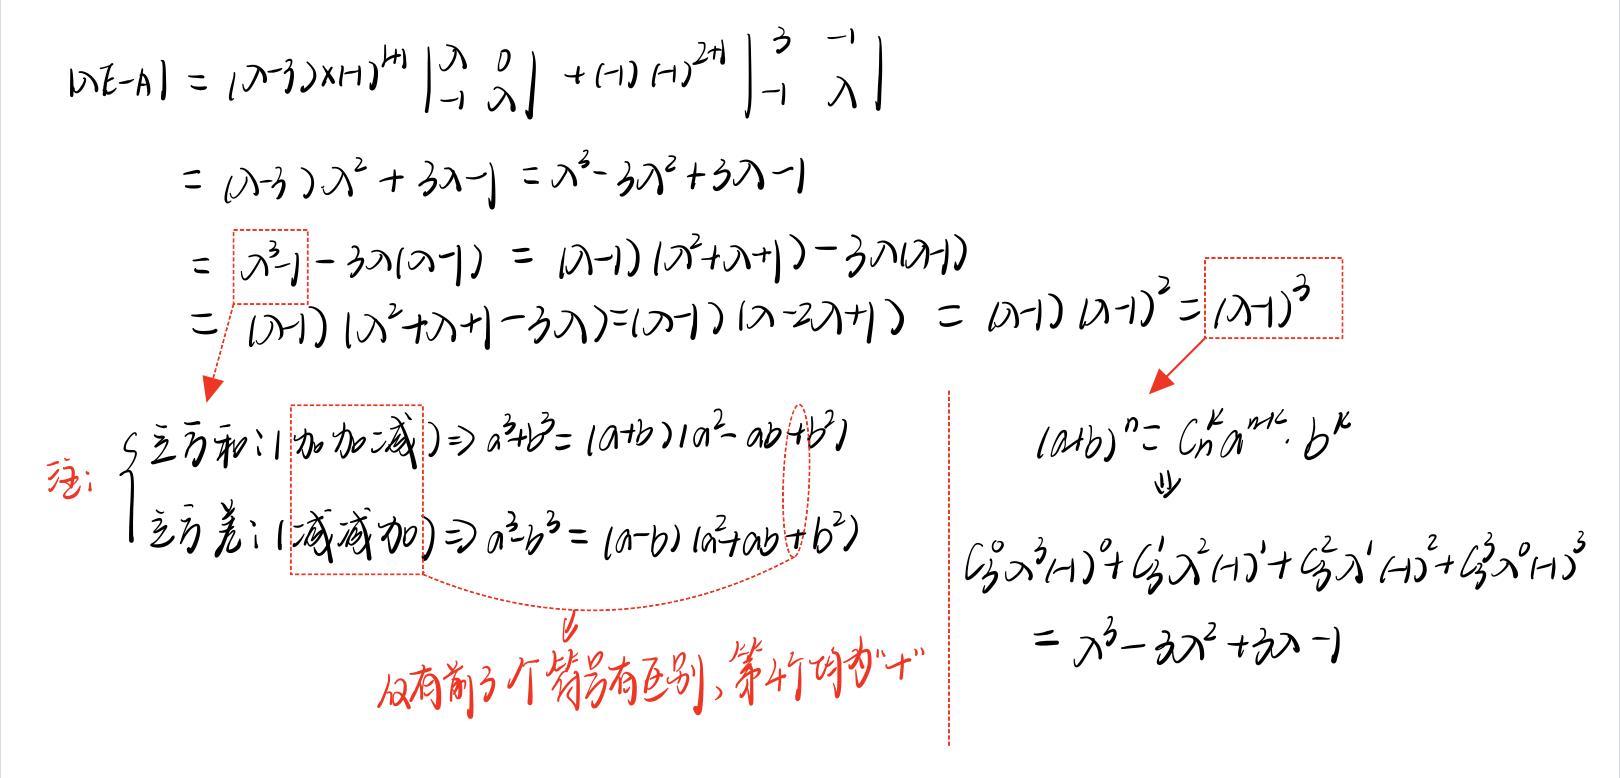 |λE-A| = (λ-3)×(-1)^{1+1} |λ 0; -1 λ| + (-1)(-1)^{2+1} |3 -1; -1 λ|
= (λ-3)λ² + 3λ-1 = λ³-3λ²+3λ-1
= λ³-1-3λ(λ-1) = (λ-1)(λ²+λ+1)-3λ(λ-1)
= (λ-1)(λ²+λ+1-3λ)=(λ-1)(λ-2λ+1) = (λ-1)(λ-1)² = (λ-1)³
注:
立方和:(加加减)⇒ a³+b³=(a+b)(a²-ab+b²)
立方差:(减减加)⇒ a³-b³=(a-b)(a²+ab+b²)
仅有前3个符号有区别、第4个均为"+"
(a+b)^n = C_n^k a^{n-k}·b^k
⇓
C_3^0λ³(-1)^0+C_3^1λ²(-1)^1+C_3^2λ^1(-1)^2+C_3^3λ^0(-1)^3
= λ³-3λ²+3λ-1